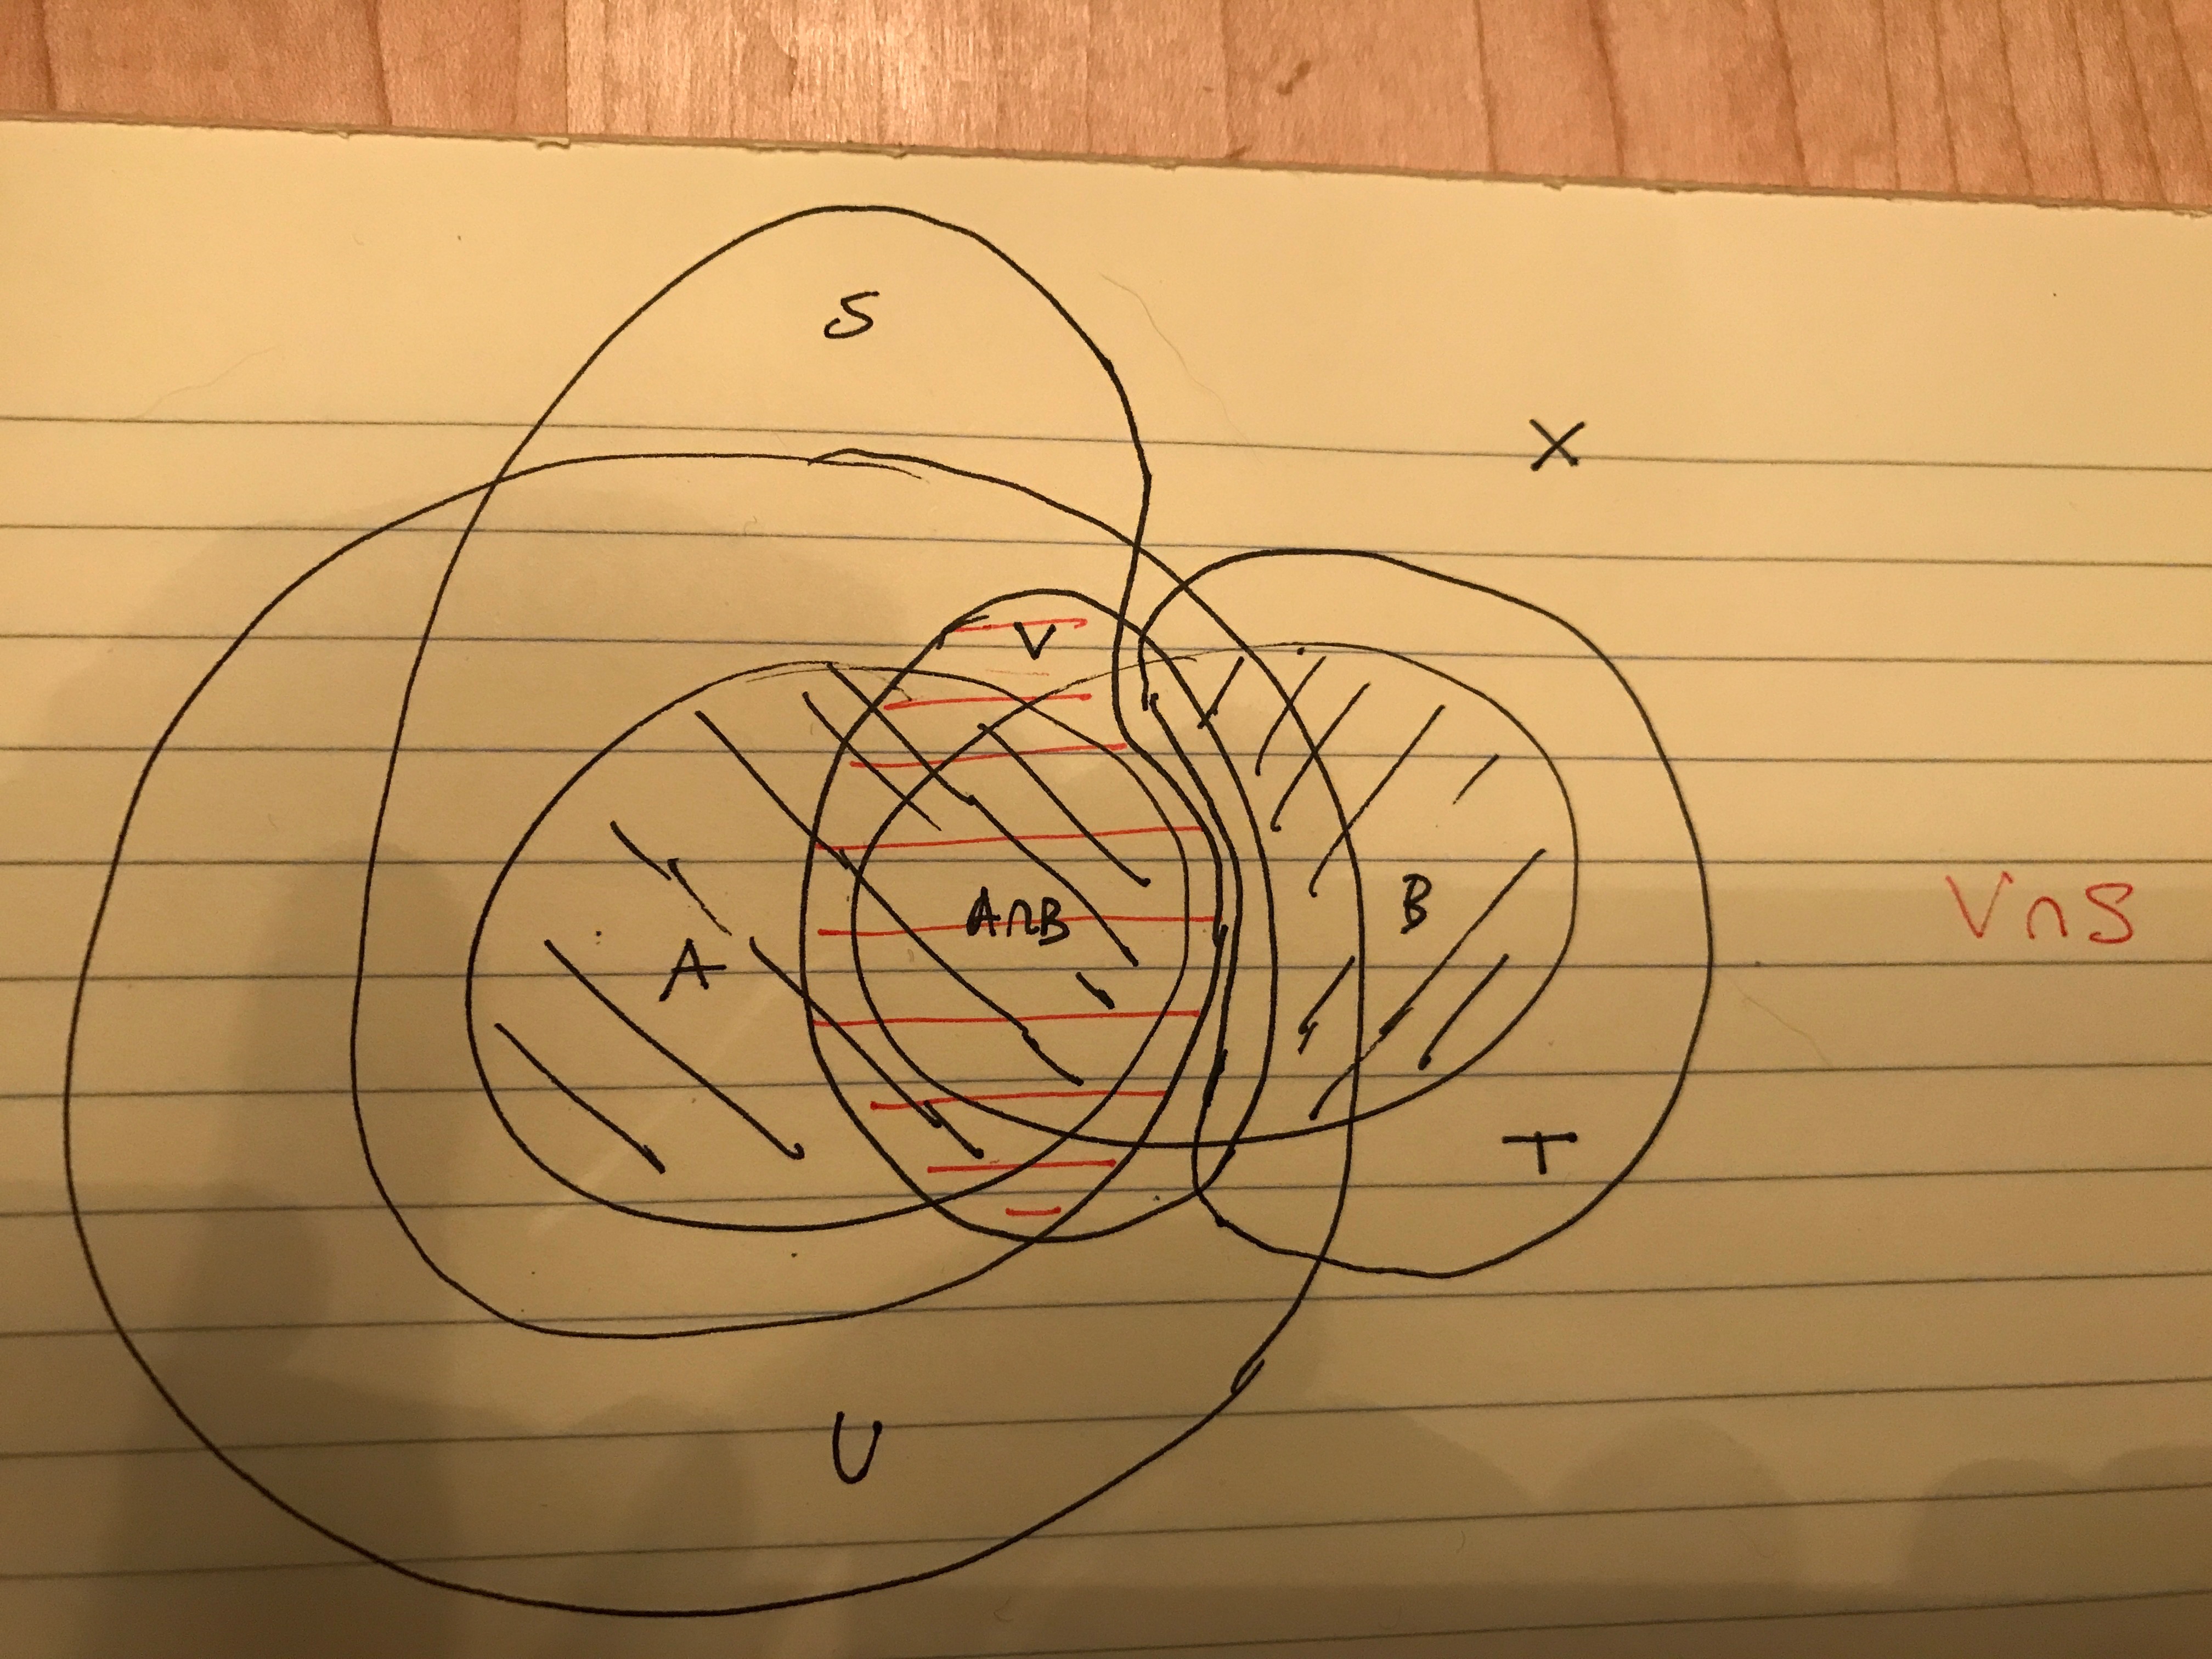 S
X
V
A∩B
B
V∩S
A
T
U